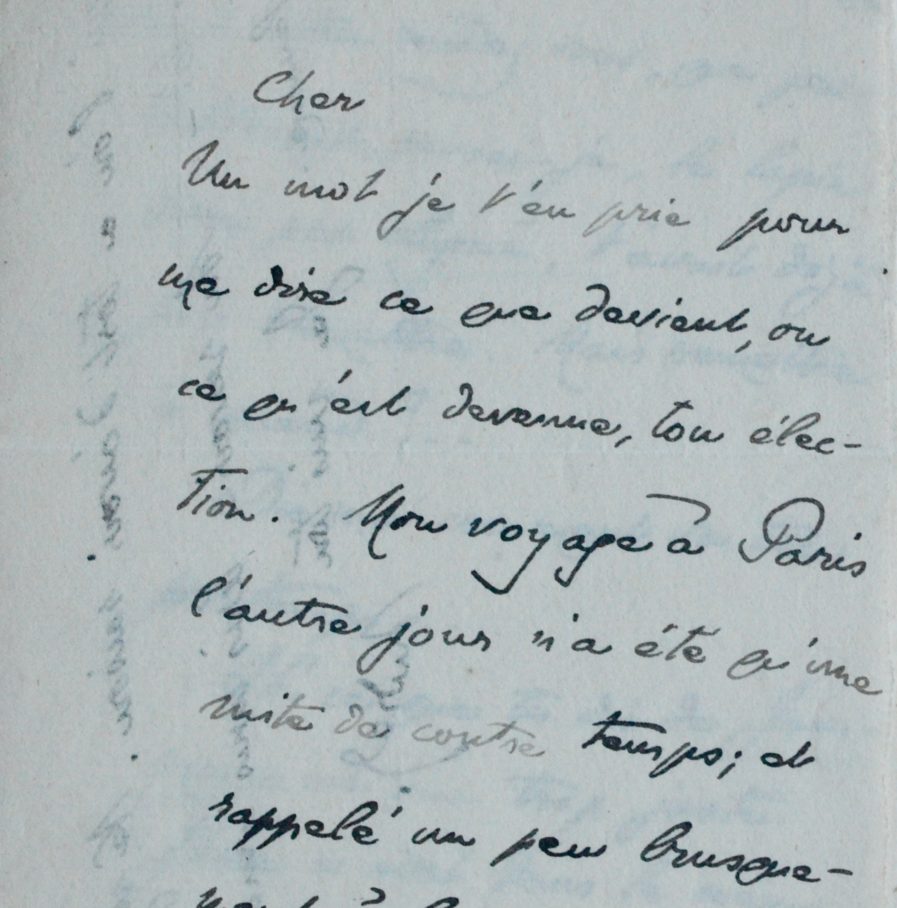 Cher
Un mot je t'en prie pour
me dire ce que devient, ou
ce qu'est devenue, ton élec-
tion. Mon voyage à Paris
l'autre jour n'a été qu'une
suite de contre temps; et
rappelé un peu brusque-